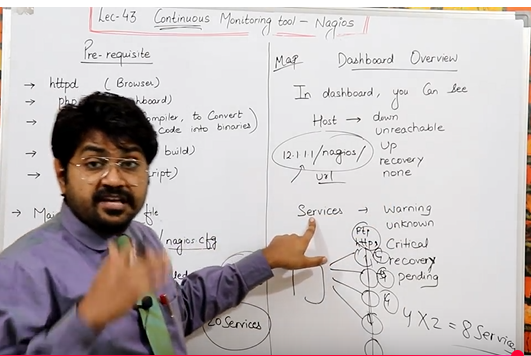 Lec-43 Continuous Monitoring tool - Nagios
Pre-requisite
→ httpd (Browser)
→ php board)
→ compiler, to Convert
code into binaries)
→ build)
→ ript)
→ Mai file
/nagios.cfg
20 Services
Map Dashboard Overview
In dashboard, you Can see
Host → down
unreachable
up
recovery
none
12.1.1.1/nagios/
url
Services → Warning
unknown
Critical
recovery
pending
ftp
http
4 X 2 = 8 Service